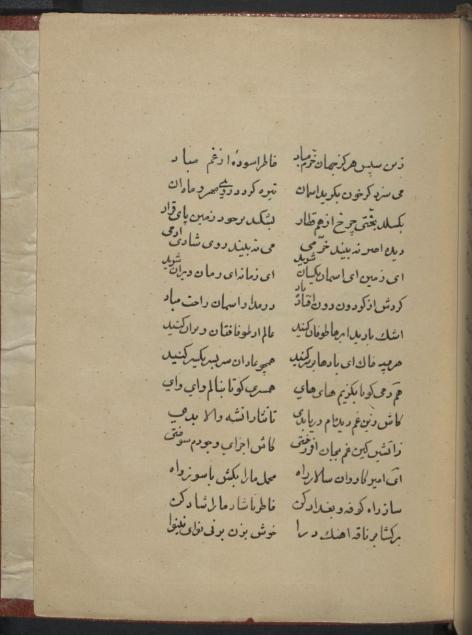 زین سپس هرگز جهان خرم مباد خاطر اسوده از غم مباد
می سزد کر خون بکرید اسمان تیره کردد روی مهر و ماه ان
بکسلد بختی چرخ از هم قطار بشکند بر خود زمین پای قرار
دیده اختر نه بیند خرمی می نه بیند روی شادی ادمی
ای زمین ای اسمان یکسان شوید ای زمانه ای زمان ویران شوید
کردش از کردون دون افتاده باد دور مدار اسمان راحت مباد
اشک بارید ابرها طوفان کنید عالم از طوفان ویران کنید
هر چه خاک ای بادها بر سر کنید همچو عادان سر بسر یکسر کنید
همدمی کو تا بکریم های های همسری کو تا بنالم وای وای
کاش زین غم دیده‌ام دریا بدی تا
زاتشی کین غم بجان افروختی کاش اجزای وجودم سوختی
ای امیر کاروان سالار راه محمل ما را بکش با سوز و اه
ساز راه کوفه و بغداد کن خاطر ناشاد ما را شاد کن
برکشا بر ناقه اهنک درا خوش بزن بر نی نوای نینوا